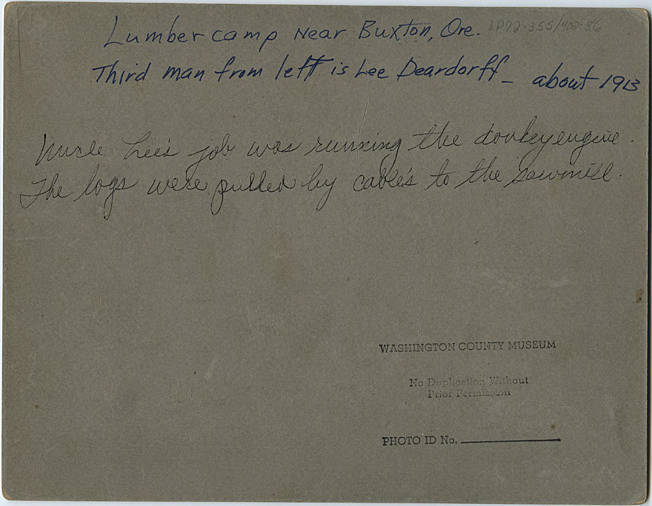 Lumber camp Near Buxton, Ore.
Third man from left is Lee Deardorff – about 1913
Uncle Lee's job was running the donkey engine.
The logs were pulled by cables to the sawmill.
WASHINGTON COUNTY MUSEUM
No Duplication Without
Prior Permission
PHOTO ID No.